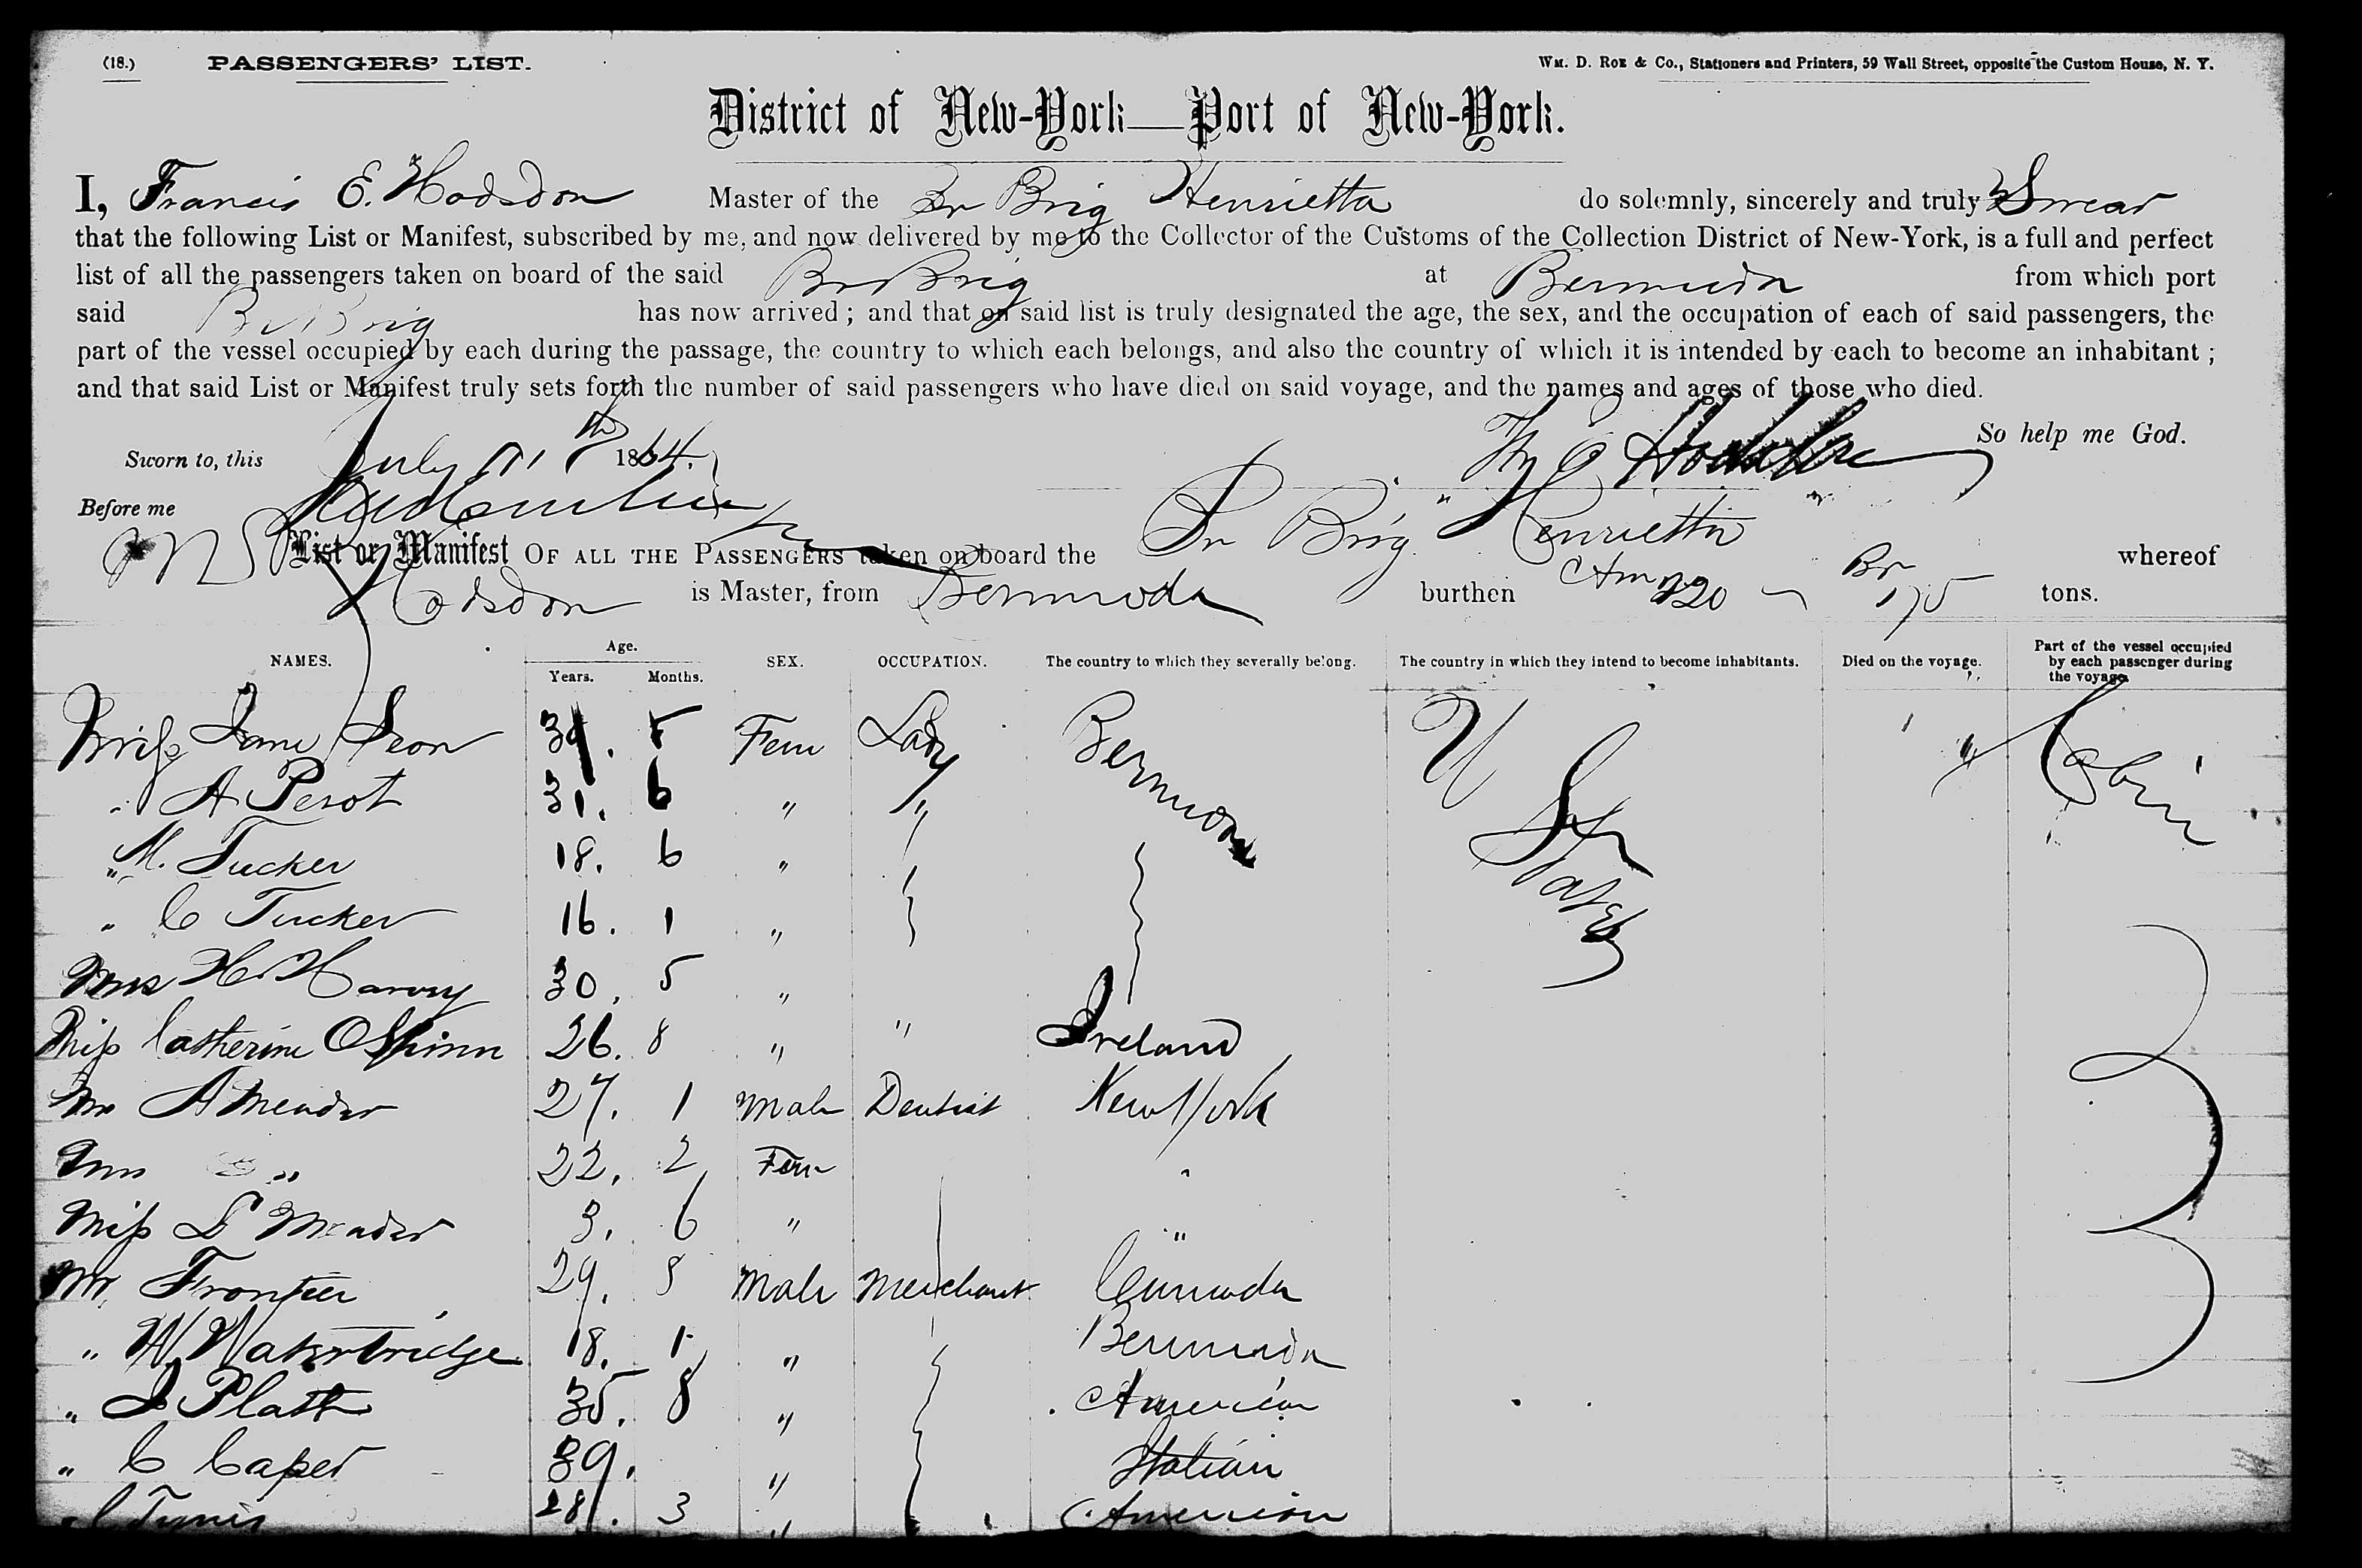 (18.) PASSENGERS' LIST. Wm. D. Roe & Co., Stationers and Printers, 59 Wall Street, opposite the Custom House, N. Y.
District of New-York—Port of New-York.
I, Francis E. Hodsdon Master of the Br Brig Henrietta do solemnly, sincerely and truly Swear
that the following List or Manifest, subscribed by me, and now delivered by me to the Collector of the Customs of the Collection District of New-York, is a full and perfect
list of all the passengers taken on board of the said Br Brig at Bermuda from which port
said Br Brig has now arrived ; and that on said list is truly designated the age, the sex, and the occupation of each of said passengers, the
part of the vessel occupied by each during the passage, the country to which each belongs, and also the country of which it is intended by each to become an inhabitant ;
and that said List or Manifest truly sets forth the number of said passengers who have died on said voyage, and the names and ages of those who died.
So help me God.
Sworn to, this July 1864.
Before me
List or Manifest OF ALL THE PASSENGERS taken on board the Br Brig Henrietta whereof
Hodsdon is Master, from Bermuda burthen Am 220 Br 175 tons.
NAMES. Age. Years. Months. SEX. OCCUPATION. The country to which they severally belong. The country in which they intend to become inhabitants. Died on the voyage. Part of the vessel occupied by each passenger during the voyage.
Miss Jane 5 Fem Lady Bermuda U States Cabin
" A Perot 31. 6 " "
" M. Tucker 18. 6 "
" C Tucker 16. 1 "
Mrs H. Harvey 30. 5 "
Miss Catherine 26. 8 " " Ireland
Mr A Meader 27. 1 Male Dentist New York
Mrs " 22. 2 Fem "
Miss Meader 3. 6 " "
Mr Frontier 29. 8 Male Merchant Canada
" W Waterbridge 18. 1 " Bermuda
" J Platt 35. 8 " American
" C Caper 39. " Italian
" C Tynis 28. 3 " American